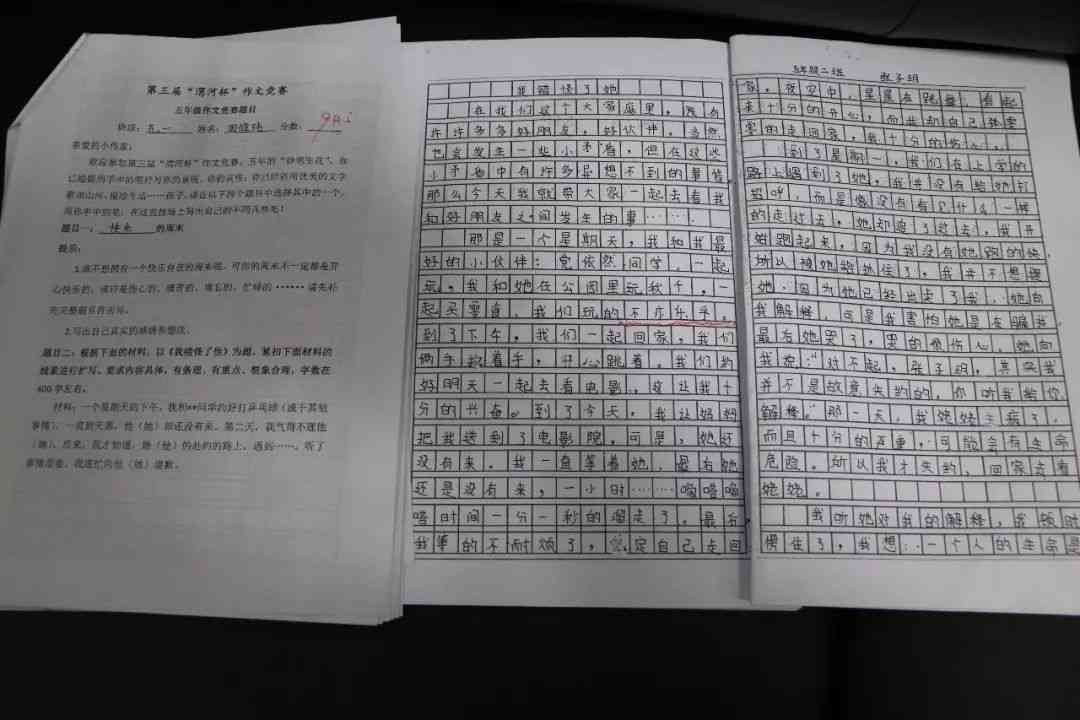 第三届“渭河杯”作文竞赛
五年级作文竞赛题目
班级：五.一 姓名： 分数：
亲爱的小作家：
欢迎参加第三届“渭河杯”作文竞赛，五年的“妙笔生花”，你
已能都用手中的
歌颂山川、描绘生活……孩子，请在以下两个题目中选择其中的一个，
用你手中的笔，在这竞技场上写出自己的不同凡响吧！
题目一： 的周末
提示：
1.谁不想拥有一个快乐自在的周末呢，可你的周末不一定都是开
心快乐的，或许是伤心的、痛苦的、难忘的、忙碌的······请先补
充完整题目再习作。
2.写出自己真实的感情和想法。
题目二：根据下面的材料，以《我错怪了他》为题，紧扣下面材料的
线索进行扩写。要求内容具体，有条理，有重点，想象合理，字数在
400字左右。
材料：一个星期天的下午，我和**同学约好打乒乓球（或干其他
事情），一直到天黑，他（她）却还没有来。第二天，我气得不理他
（她）。后来，我才知道，她（他）的赴约的路上，遇到……，听了
事情原委，我连忙向他（她）道歉。
我错怪了她
在我们这个大家庭里，既有
许许多多好朋友，好伙伴，当然
也会发生一些小矛盾，但在这些
小矛盾中有许多意想不到的事情
那么今天我就带大家一起去看我
和好朋友之间发生的事……
那是一个星期天，我和我最
好的小伙伴：党依然同学，一起
玩。我和她在公园里玩秋千，一
起买零食，我们玩的不亦乐乎。
到了下午，我们一起回家，我们
俩手拉着手，开心跳着。我们约
好明天一起去看电影，这让我十
分的兴奋。到了今天，我让妈妈
把我送到了电影院，可是，她还
没有来。我一直等着她，最后她
还是没有来，一小时……嗒嗒嗒
嗒时间一分一秒的溜走了。最后
我等的不耐烦了，决定自己走回
五年级二班 张子玥
家。夜空中，星星在跳舞，看起
来十分的开心，而我却自己孤零
零的走回家，我十分的伤心。
到了星期一，我们在上学的
路上遇到了她，我并没有给她打
招呼，而是像没有看见什么一样
的走过去，她却追了过去，我开
始跑起来，因为我没有她跑的快，
所以被她给抓住了，我并不想理
她，因为她已经出卖了我，她向
我解释，可是我害怕她是在骗我
最后她哭了，哭的很伤心，她向
我说：“对不起，张子玥，其实我
并不是故意失约的，你听我给你
解释。”那一天，我姥姥生病了，
而且十分的严重，可能会有生命
危险。所以我才失约，回家去看
姥姥。
我听她对我的解释，我顿时
愣住了，我想：一个人的生命是